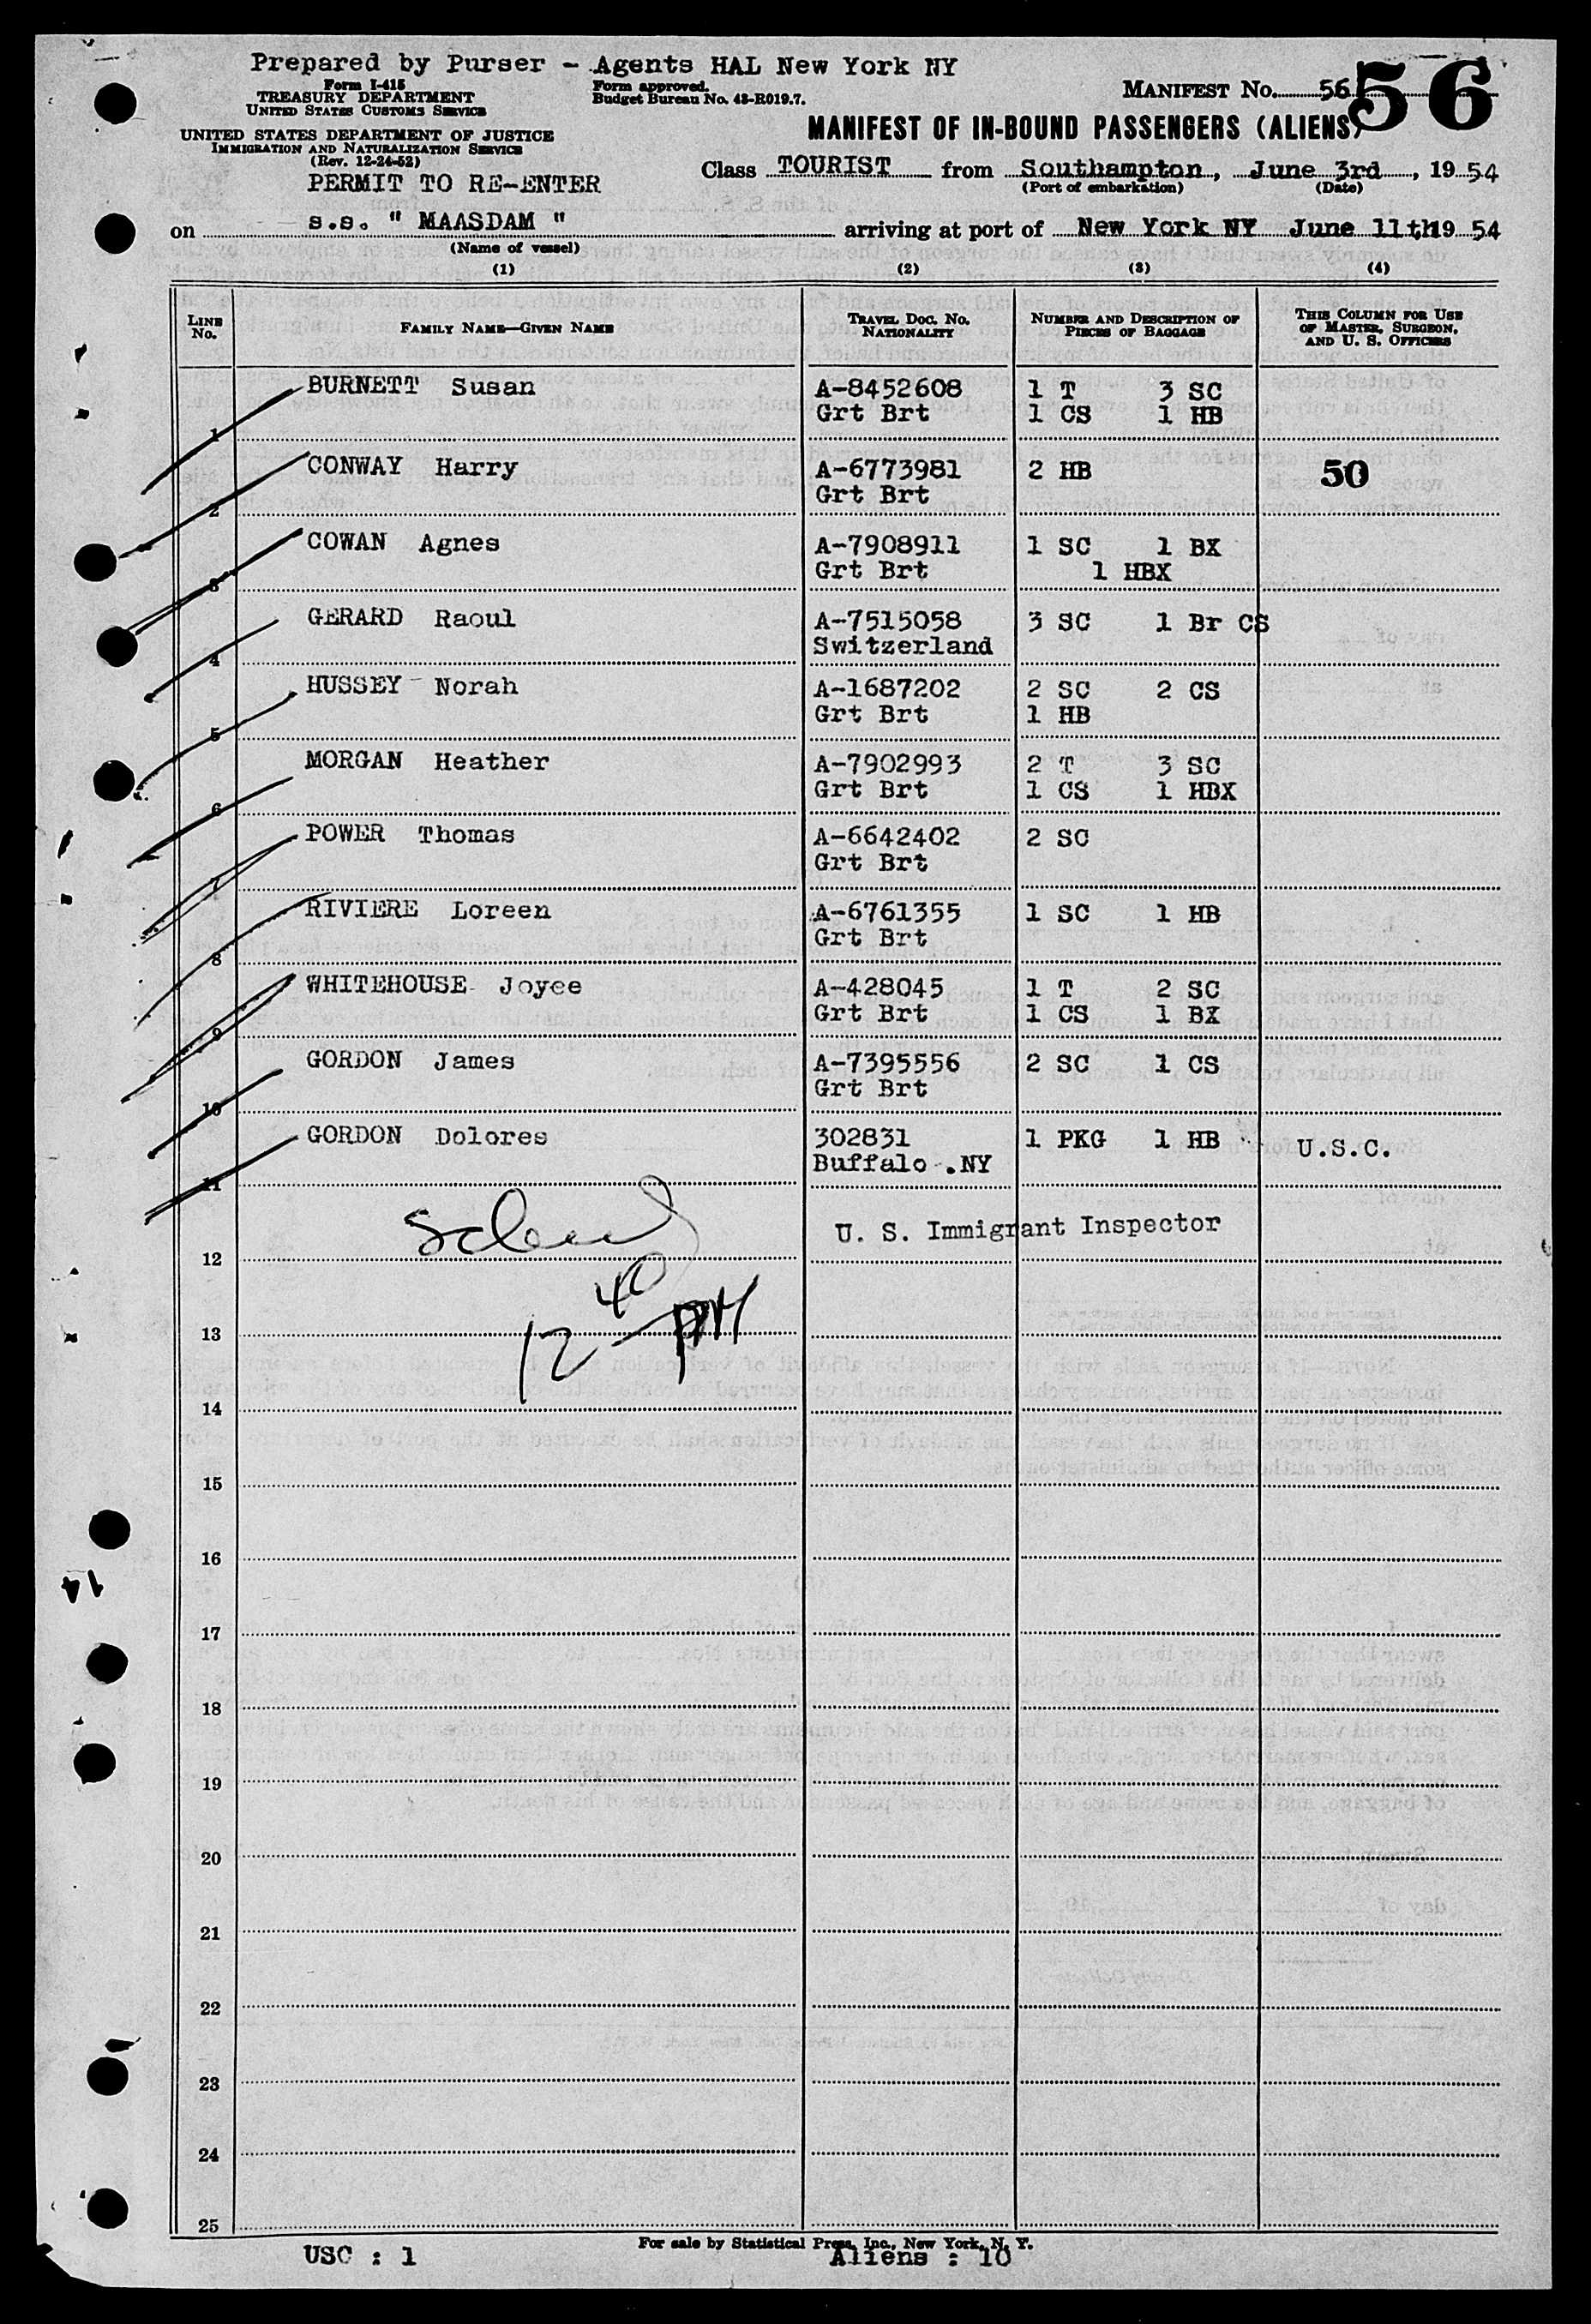 Prepared by Purser - Agents HAL New York NY
Form I-415
TREASURY DEPARTMENT
UNITED STATES CUSTOMS SERVICE
Form approved.
Budget Bureau No. 43-R019.7.
MANIFEST No. 56 56
UNITED STATES DEPARTMENT OF JUSTICE
IMMIGRATION AND NATURALIZATION SERVICE
(Rev. 12-24-52)
MANIFEST OF IN-BOUND PASSENGERS (ALIENS)
PERMIT TO RE-ENTER
Class TOURIST from Southampton, June 3rd, 1954
(Port of embarkation) (Date)
on s.s. " MAASDAM " arriving at port of New York NY June 11th 1954
(Name of vessel)
(1) (2) (3) (4)
LINE No. FAMILY NAME—GIVEN NAME TRAVEL DOC. No. NATIONALITY NUMBER AND DESCRIPTION OF PIECES OF BAGGAGE THIS COLUMN FOR USE OF MASTER, SURGEON, AND U. S. OFFICERS
BURNETT Susan A-8452608 1 T 3 SC
1 Grt Brt 1 CS 1 HB
CONWAY Harry A-6773981 2 HB 50
2 Grt Brt
COWAN Agnes A-7908911 1 SC 1 BX
3 Grt Brt 1 HBX
GERARD Raoul A-7515058 3 SC 1 Br CS
4 Switzerland
HUSSEY Norah A-1687202 2 SC 2 CS
5 Grt Brt 1 HB
MORGAN Heather A-7902993 2 T 3 SC
6 Grt Brt 1 CS 1 HBX
POWER Thomas A-6642402 2 SC
7 Grt Brt
RIVIERE Loreen A-6761355 1 SC 1 HB
8 Grt Brt
WHITEHOUSE Joyce A-428045 1 T 2 SC
9 Grt Brt 1 CS 1 BX
GORDON James A-7395556 2 SC 1 CS
10 Grt Brt
GORDON Dolores 302831 1 PKG 1 HB U.S.C.
11 Buffalo .NY
U. S. Immigrant Inspector
12
12 40 PM
13
14
15
16
17
18
19
20
21
22
23
24
25
For sale by Statistical Press, Inc., New York, N. Y.
USC : 1 Aliens : 10